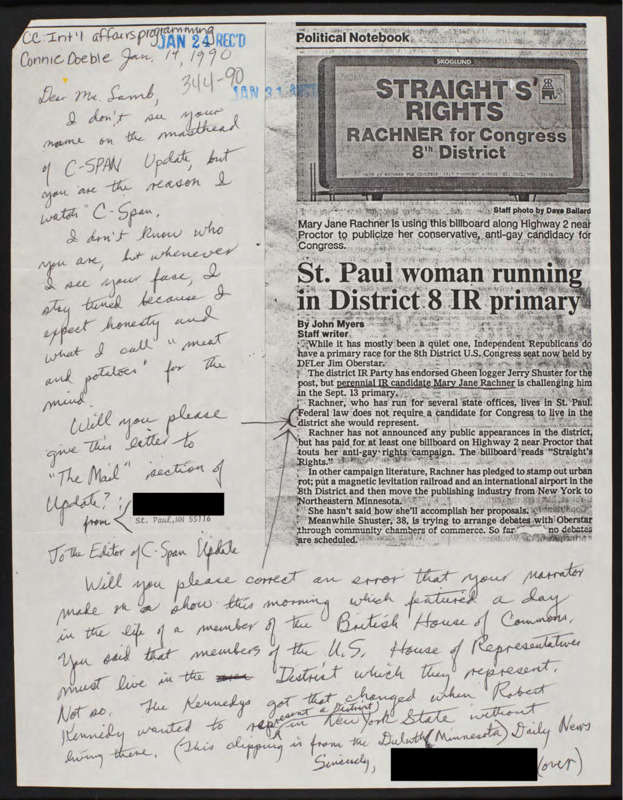 CC Int'l affairs programming
Connie Doeble Jan. 14, 1990
JAN 24 REC'D
344-90
JAN 31
Dear Mr. Lamb,
I don't see your
name on the masthead
of C-SPAN Update, but
you are the reason I
watch C-Span.
I don't know who
you are, but whenever
I see your face, I
stay tuned because I
expect honesty and
what I call "meat
and potatoes" for the
mind.
Will you please
give this letter to
"The Mail" section of
Update?
from
St. Paul, MN 55116
Political Notebook
SKOGLUND
STRAIGHT'S
RIGHTS
RACHNER for Congress
8th District
Staff photo by Dave Ballard
Mary Jane Rachner is using this billboard along Highway 2 near
Proctor to publicize her conservative, anti-gay candidacy for
Congress.
St. Paul woman running
in District 8 IR primary
By John Myers
Staff writer
While it has mostly been a quiet one, Independent Republicans do
have a primary race for the 8th District U.S. Congress seat now held by
DFLer Jim Oberstar.
The district IR Party has endorsed Gheen logger Jerry Shuster for the
post, but perennial IR candidate Mary Jane Rachner is challenging him
in the Sept. 13 primary.
Rachner, who has run for several state offices, lives in St. Paul.
Federal law does not require a candidate for Congress to live in the
district she would represent.
Rachner has not announced any public appearances in the district,
but has paid for at least one billboard on Highway 2 near Proctor that
touts her anti-gay-rights campaign. The billboard reads "Straight's
Rights."
In other campaign literature, Rachner has pledged to stamp out urban
rot; put a magnetic levitation railroad and an international airport in the
8th District and then move the publishing industry from New York to
Northeastern Minnesota.
She hasn't said how she'll accomplish her proposals.
Meanwhile Shuster, 38, is trying to arrange debates with Oberstar
through community chambers of commerce. So far no debates
are scheduled.
To the Editor of C-Span Update
Will you please correct an error that your narrator
made on a show this morning which featured a day
in the life of a member of the British House of Commons.
You said that members of the U.S. House of Representatives
must live in the District which they represent.
Not so. The Kennedys got that changed when Robert
Kennedy wanted to represent a District in New York State without
living there. (This clipping is from the Duluth (Minnesota) Daily News
Sincerely,
(over)